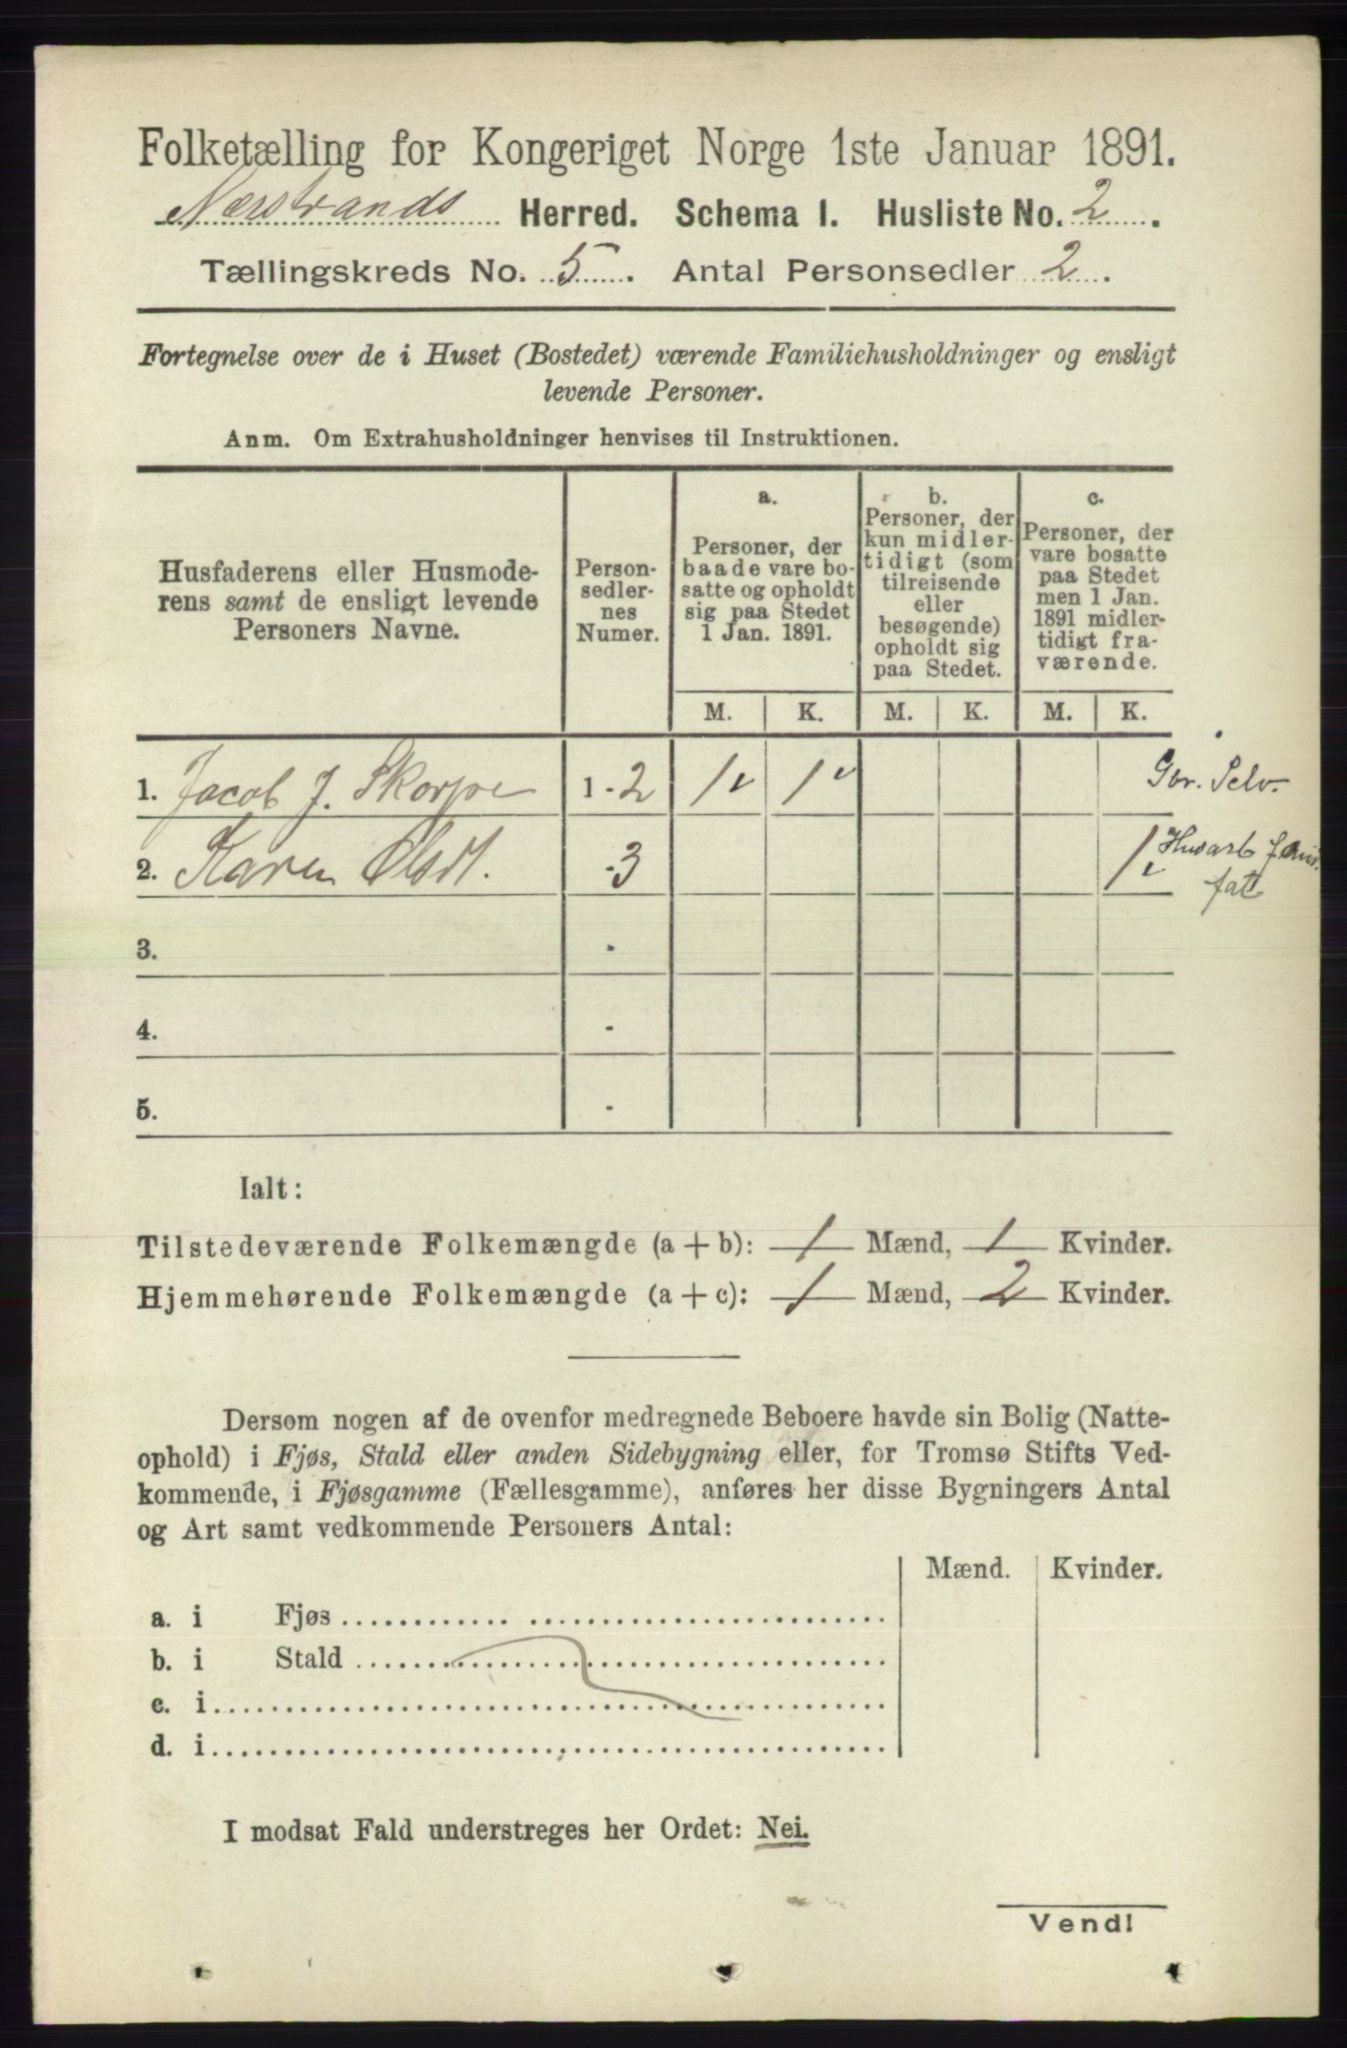 Folketælling for Kongeriget Norge 1ste Januar 1891.
Nerstrands Herred. Schema I. Husliste No. 2.
Tællingskreds No. 5. Antal Personsedler 2.
Fortegnelse over de i Huset (Bostedet) værende Familiehusholdninger og ensligt
levende Personer.
Anm. Om Extrahusholdninger henvises til Instruktionen.
Husfaderens eller Husmode-
rens samt de ensligt levende
Personers Navne.
Person-
sedler-
nes
Numer.
a.
Personer, der
baade vare bo-
satte og opholdt
sig paa Stedet
1 Jan. 1891.
b.
Personer, der
kun midler-
tidigt (som
tilreisende
eller
besøgende)
opholdt sig
paa Stedet.
c.
Personer, der
vare bosatte
paa Stedet
men 1 Jan.
1891 midler-
tidigt fra-
værende.
M. K. M. K. M. K.
1. Jacob J. Skorpe 1-2 1 1 Gbr. Selv.
2. Karen Olsdt. -3 1 Husarb
fat
3. -
4. -
5. -
Ialt:
Tilstedeværende Folkemængde (a + b): 1 Mænd, 1 Kvinder.
Hjemmehørende Folkemængde (a + c): 1 Mænd, 2 Kvinder.
Dersom nogen af de ovenfor medregnede Beboere havde sin Bolig (Natte-
ophold) i Fjøs, Stald eller anden Sidebygning eller, for Tromsø Stifts Ved-
kommende, i Fjøsgamme (Fællesgamme), anføres her disse Bygningers Antal
og Art samt vedkommende Personers Antal:
Mænd. Kvinder.
a. i Fjøs
b. i Stald
c. i
d. i
I modsat Fald understreges her Ordet: Nei.
Vend!